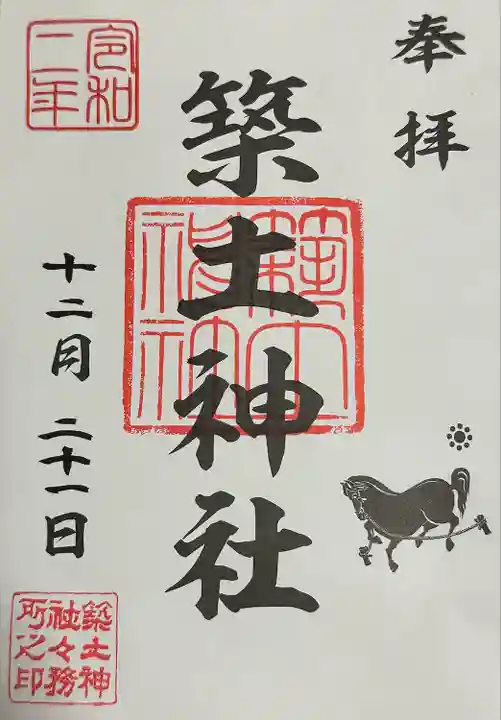 奉拝
築土神社
築土神社
令和二年
十二月二十一日
築土神社々務所之印